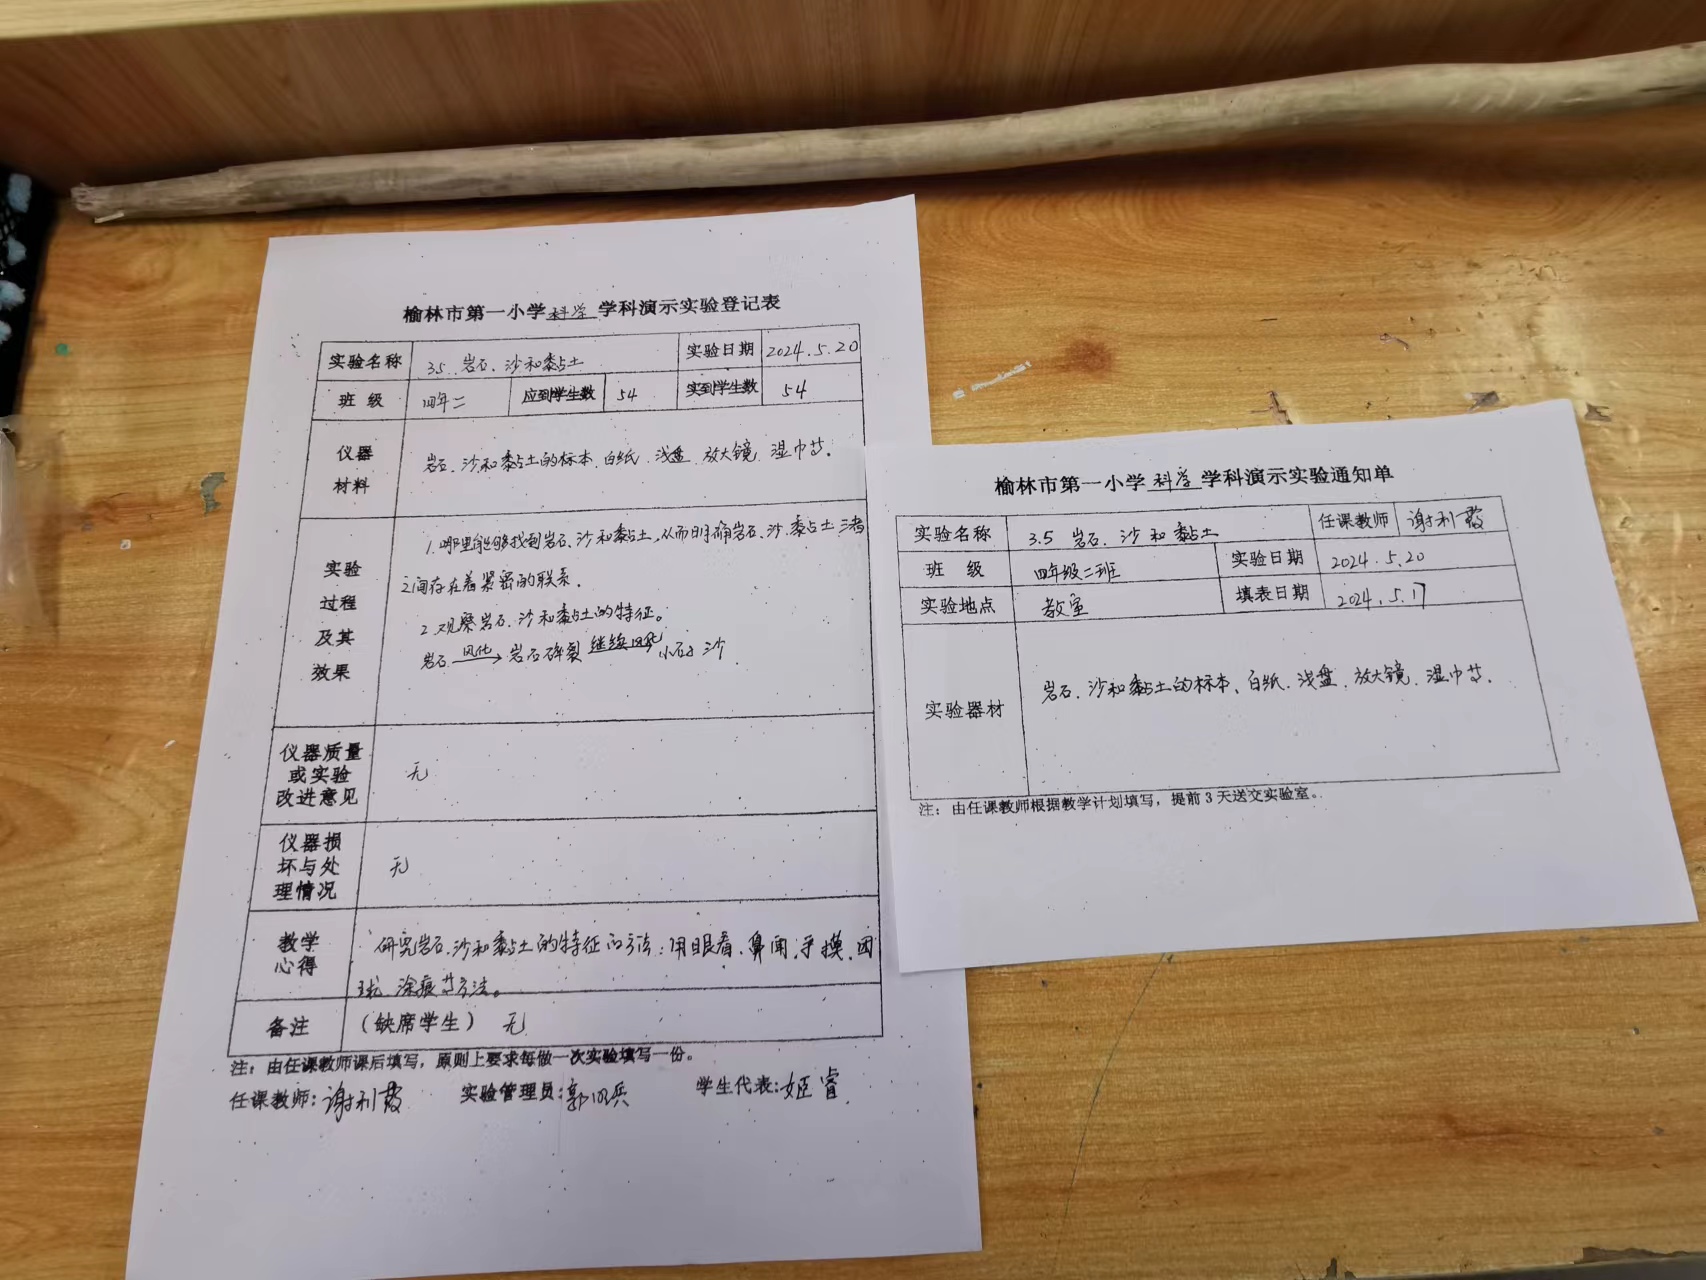 榆林市第一小学科学学科演示实验登记表
实验名称 3.5 岩石、沙和黏土 实验日期 2024.5.20
班 级 四年二 应到学生数 54 实到学生数 54
仪器
材料
岩石、沙和黏土的标本、白纸、浅盘、放大镜、湿巾等。
实验
过程
及其
效果
1.哪里能够找到岩石、沙和黏土,从而明确岩石、沙、黏土三者
之间存在着紧密的联系。
2.观察岩石、沙和黏土的特征。
岩石 风化→ 岩石碎裂 继续风化 小石子 沙
仪器质量
或实验
改进意见
无
仪器损
坏与处
理情况
无
教学
心得
研究岩石、沙和黏土的特征的方法:用眼看、鼻闻、手摸、团
球、涂痕等方法。
备注 (缺席学生) 无
注:由任课教师课后填写,原则上要求每做一次实验填写一份。
任课教师:谢利霞 实验管理员:郭 兵 学生代表:姬睿
榆林市第一小学科学学科演示实验通知单
实验名称 3.5 岩石、沙和黏土 任课教师 谢利霞
班 级 四年级二班 实验日期 2024.5.20
实验地点 教室 填表日期 2024.5.17
实验器材 岩石、沙和黏土的标本、白纸、浅盘、放大镜、湿巾等.
注:由任课教师根据教学计划填写,提前3天送交实验室。